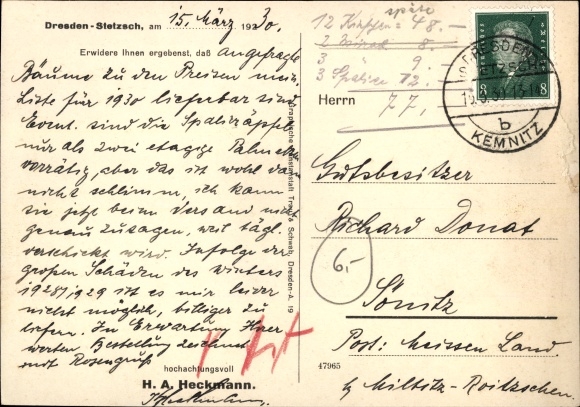 Dresden-Stetzsch, am 15. März 1930.
Erwidere Ihnen ergebenst, daß angefragte
Bäume zu den Preisen meiner
Liste für 1930 lieferbar sind
Event. sind die Spalieräpfel
nur als zwei etagige Palmetten
vorrätig, aber das ist wohl dann
nicht schlimm, ich kann
sie jetzt beim Versand nicht
genau zusagen, weil tägl.
verschickt wird. Infolge der
großen Schäden des Winters
1928/1929 ist es mir leider
nicht möglich, billiger zu
liefern. In Erwartung Ihrer
werten Bestellung zeichnet
mit Rosengruß
hochachtungsvoll
H. A. Heckmann.
HHeckmann.
Graphische Kunstanstalt Trau & Schwab, Dresden-A. 19
späte
12 Kirschen = 48.-
2 8.-
3 9.-
3 Spaliere 12.-
77,
DRESDEN
STETZSCH
15.3.30.
b
KEMNITZ
8 8
Herrn
Gutsbesitzer
Richard Donat
Sönitz
Post: Meissen Land
b/ Miltitz-Roitzschen.
6.-
47965